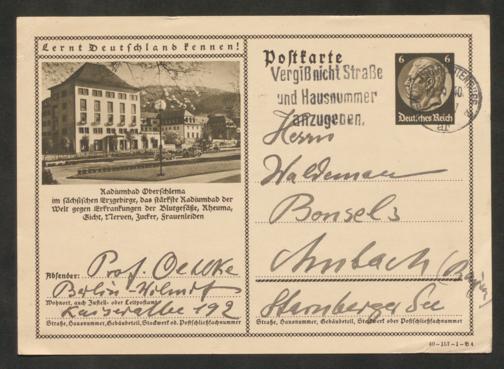 Lernt Deutschland kennen!
Radiumbad Oberschlema
im sächsischen Erzgebirge, das stärkste Radiumbad der
Welt gegen Erkrankungen der Blutgefäße, Rheuma,
Gicht, Nerven, Zucker, Frauenleiden
Absender: Prof. Oehlke
Berlin-Wilmdf
Wohnort, auch Zustell- oder Leitpostamt
Kaiserallee 192
Straße, Hausnummer, Gebäudeteil, Stockwerk od. Postschließfachnummer
Postkarte
Vergiß nicht Straße
und Hausnummer
anzugeben.
6 6
Deutsches Reich
Herrn
Waldemar
Bonsels
Ambach (Bayern)
Starnberger See
Straße, Hausnummer, Gebäudeteil, Stockwerk oder Postschließfachnummer